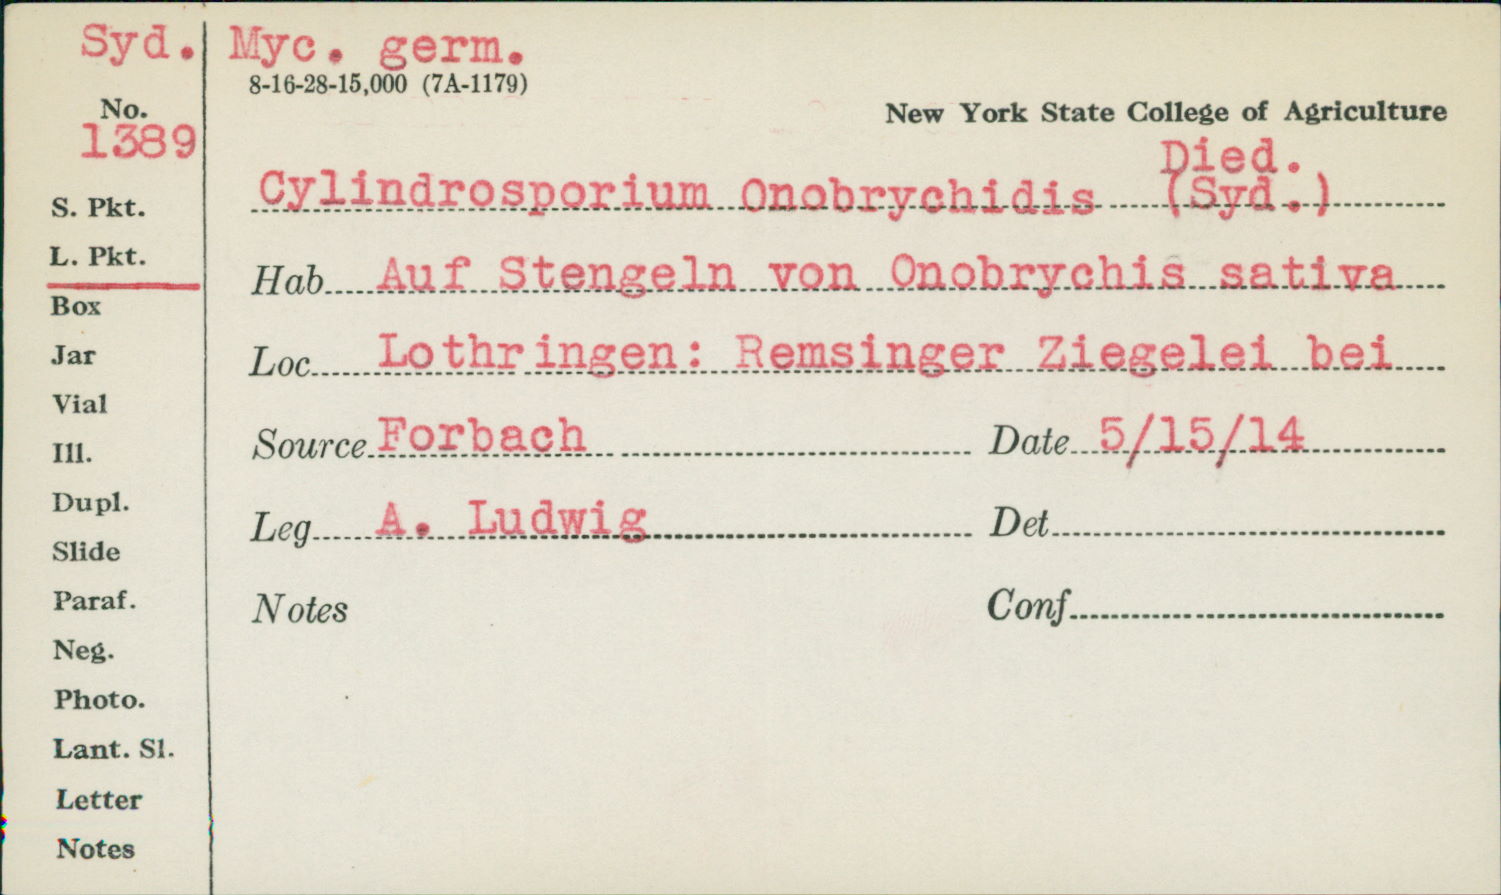 Syd. Myc. germ.
8-16-28-15,000 (7A-1179)
No.
1389
New York State College of Agriculture
Died.
Cylindrosporium Onobrychidis (Syd.)
S. Pkt.
L. Pkt.
Box
Jar
Vial
Ill.
Dupl.
Slide
Paraf.
Neg.
Photo.
Lant. Sl.
Letter
Notes
Hab Auf Stengeln von Onobrychis sativa
Loc Lothringen: Remsinger Ziegelei bei
Source Forbach Date 5/15/14
Leg A. Ludwig Det
Notes Conf